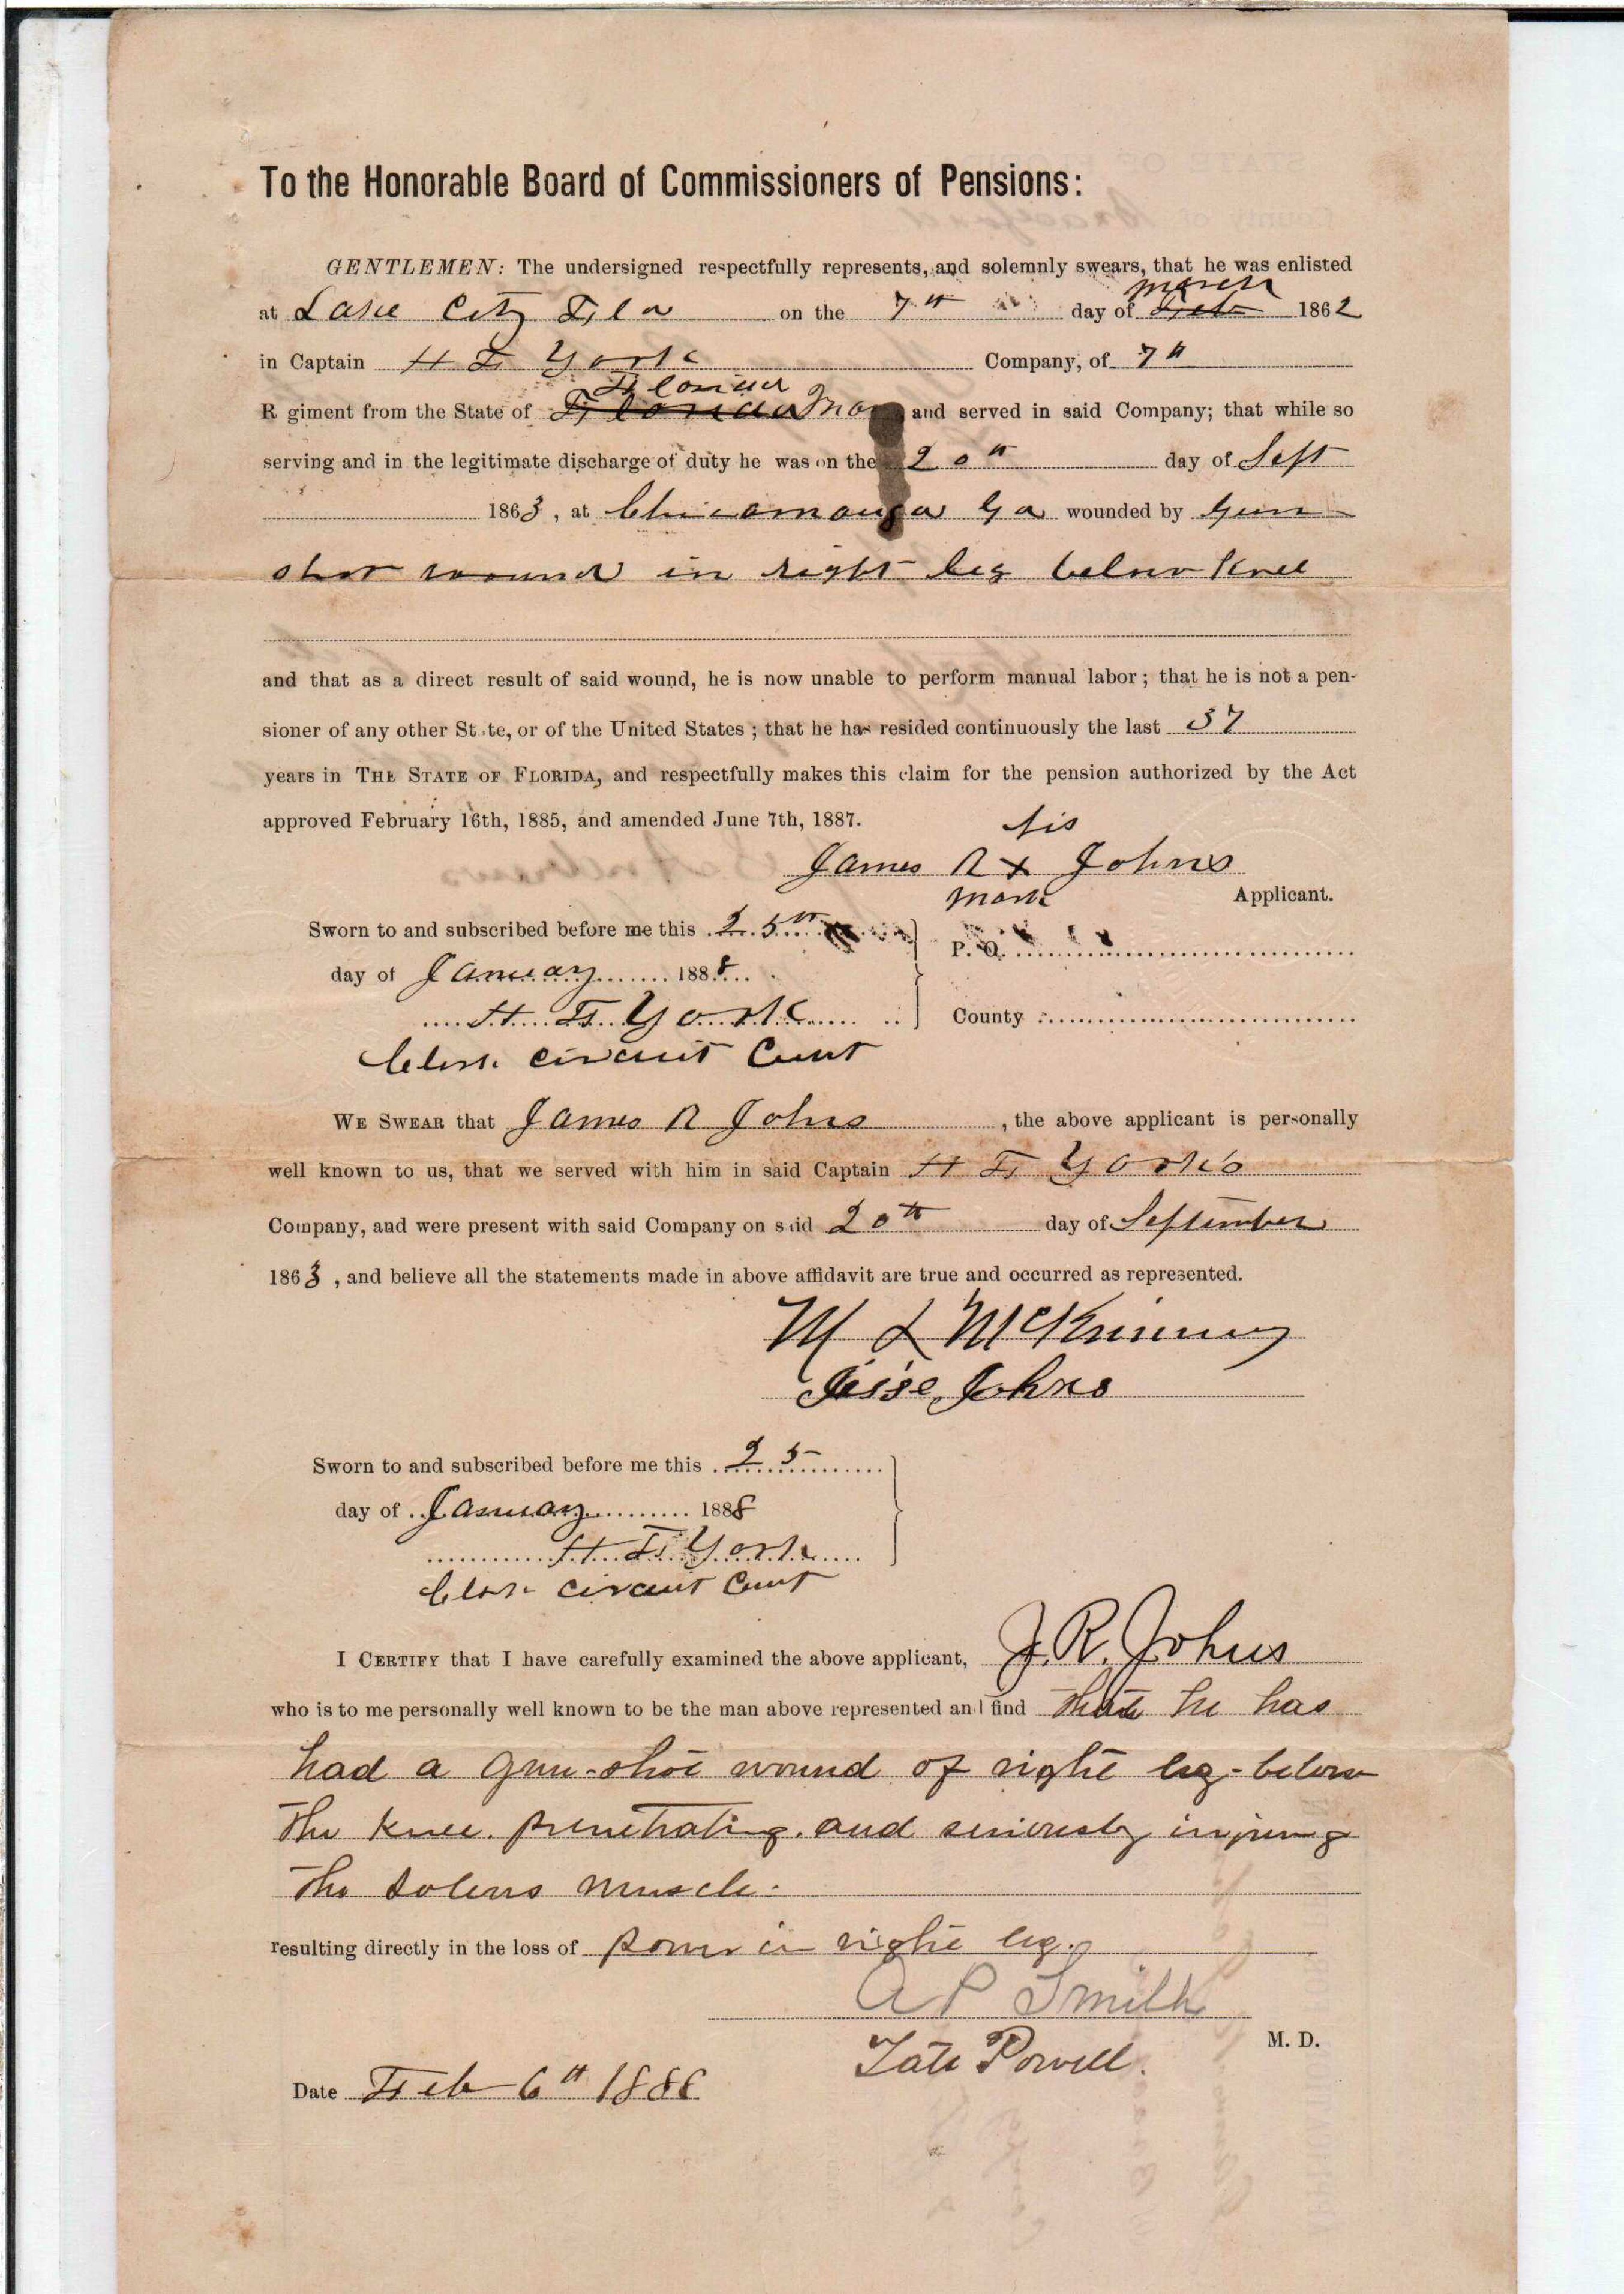 To the Honorable Board of Commissioners of Pensions:
GENTLEMEN: The undersigned respectfully represents, and solemnly swears, that he was enlisted
March
at Lake City Fla on the 7th day of Feb 1862
in Captain H F York Company, of 7th
Florida
R giment from the State of Florida and served in said Company; that while so
serving and in the legitimate discharge of duty he was on the 20th day of Sept
1863, at Chicamauga Ga wounded by Gun
shot wound in right leg below Knee
and that as a direct result of said wound, he is now unable to perform manual labor; that he is not a pen-
sioner of any other St te, or of the United States; that he has resided continuously the last 37
years in THE STATE OF FLORIDA, and respectfully makes this claim for the pension authorized by the Act
approved February 16th, 1885, and amended June 7th, 1887.
his
James R x Johns
mark Applicant.
Sworn to and subscribed before me this 25th
P. O.
day of January 1888
H F York
County
Clerk circuit Court
WE SWEAR that James R Johns, the above applicant is personally
well known to us, that we served with him in said Captain H F York's
Company, and were present with said Company on said 20th day of September
1863, and believe all the statements made in above affidavit are true and occurred as represented.
M L McKinney
Jesse Johns
Sworn to and subscribed before me this 25
day of January 1888
H F York
Clerk circuit Court
I CERTIFY that I have carefully examined the above applicant, J. R. Johns
who is to me personally well known to be the man above represented and find that he has
had a gun-shot wound of right leg-below
the knee. penetrating. and seriously injuring
the soleus muscle.
resulting directly in the loss of power in right leg.
A P Smith
M. D.
Tate Powell.
Date Feb 6th 1888